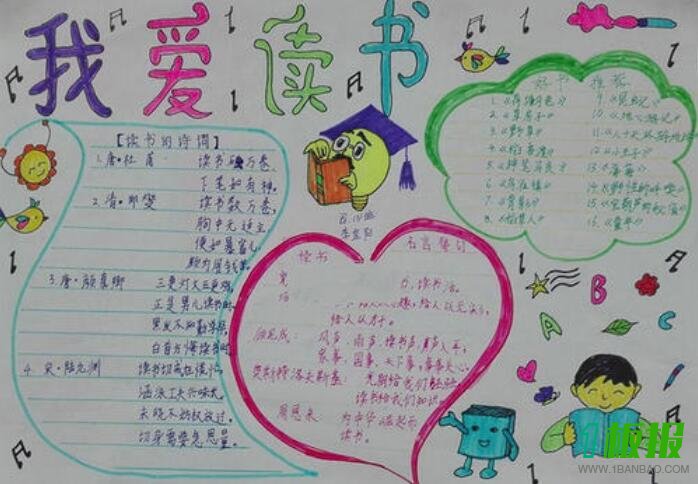 我爱读书
【读书的诗词】
1.唐·杜甫 读书破万卷,
下笔如有神。
2.清·郑燮 读书数万卷,
胸中无适主
便如暴富儿
颇为用钱苦。
3.唐·颜真卿 三更灯火五更鸡
正是男儿读书时
黑发不知勤学早
白首方悔读书时
4.宋·陆九渊 读书切戒在慌忙
涵泳工夫兴味长
未晓不妨权放过,
切身需要急思量。
好书推荐
1.《荷塘月色》
2.《草房子》
3.《野草》
5.《神笔马良》
7.《背影》
8.《稻草人》
9.《昆虫记》
10.《地心游记》
11.《八十天环游地球》
12.《小王子》
14.《野性的呼唤》
16.《童年》
读书 名言警句
给人以
风声、雨声、读书声,声声入耳,
家事、国事、天下事,事事关心。
读书给我们知识。
周恩来 为中华崛起而
读书。
A
B
C
板报
WWW.1BANBAO.COM